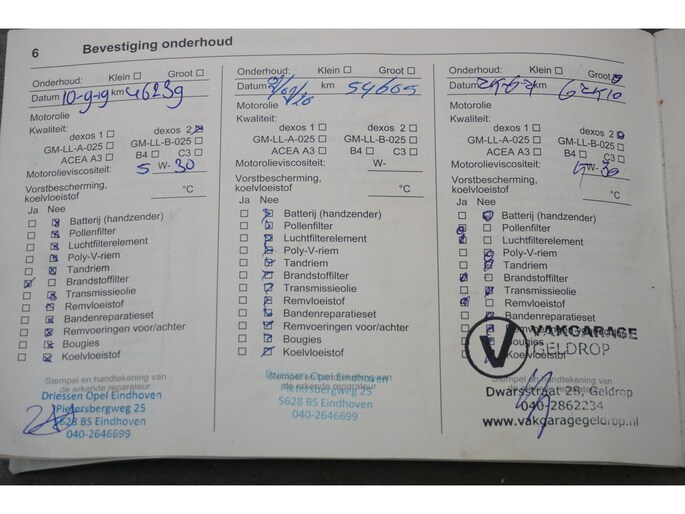 6 Bevestiging onderhoud
Onderhoud: Klein ☐ Groot ☐
Datum 10-9-19 km 46239
Motorolie
Kwaliteit:
dexos 1 ☐ dexos 2 ☒
GM-LL-A-025 ☐ GM-LL-B-025 ☐
ACEA A3 ☐ B4 ☐ C3 ☐
Motorolieviscositeit: 5 W- 30
Vorstbescherming,
koelvloeistof °C
Ja Nee
☐ ☒ Batterij (handzender)
☐ ☒ Pollenfilter
☐ ☒ Luchtfilterelement
☐ ☒ Poly-V-riem
☐ ☒ Tandriem
☒ ☐ Brandstoffilter
☐ ☒ Transmissieolie
☐ ☒ Remvloeistof
☐ ☒ Bandenreparatieset
☐ ☒ Remvoeringen voor/achter
☐ ☒ Bougies
☐ ☒ Koelvloeistof
Stempel en handtekening van
de erkende reparateur
Driessen Opel Eindhoven
Pietersbergweg 25
5628 BS Eindhoven
040-2646699
Onderhoud: Klein ☐ Groot ☐
Datum km
Motorolie
Kwaliteit:
dexos 1 ☐ dexos 2 ☐
GM-LL-A-025 ☐ GM-LL-B-025 ☐
ACEA A3 ☐ B4 ☐ C3 ☐
Motorolieviscositeit: W-
Vorstbescherming,
koelvloeistof °C
Ja Nee
☐ ☒ Batterij (handzender)
☐ ☒ Pollenfilter
☐ ☒ Luchtfilterelement
☐ ☒ Poly-V-riem
☐ ☒ Tandriem
☐ ☒ Brandstoffilter
☐ ☒ Transmissieolie
☐ ☒ Remvloeistof
☐ ☒ Bandenreparatieset
☐ ☒ Remvoeringen voor/achter
☐ ☒ Bougies
☐ ☒ Koelvloeistof
Stempel en handtekening van
de erkende reparateur
Driessen Opel Eindhoven
Pietersbergweg 25
5628 BS Eindhoven
040-2646699
Onderhoud: Klein ☐ Groot ☒
Datum km
Motorolie
Kwaliteit:
dexos 1 ☐ dexos 2 ☒
GM-LL-A-025 ☐ GM-LL-B-025 ☐
ACEA A3 ☐ B4 ☐ C3 ☐
Motorolieviscositeit: W-30
Vorstbescherming,
koelvloeistof °C
Ja Nee
☐ ☒ Batterij (handzender)
☒ ☐ Pollenfilter
☒ ☐ Luchtfilterelement
☐ ☒ Poly-V-riem
☐ ☒ Tandriem
☒ ☐ Brandstoffilter
☐ ☒ Transmissieolie
☒ ☐ Remvloeistof
☐ ☒ Bandenreparatieset
☐ ☒ Remvoeringen voor/achter
☐ ☒ Bougies
☐ ☒ Koelvloeistof
V VAKGARAGE
GELDROP
Stempel en handtekening van
de erkende reparateur
Dwarsstraat 28, Geldrop
040-2862234
www.vakgaragegeldrop.nl